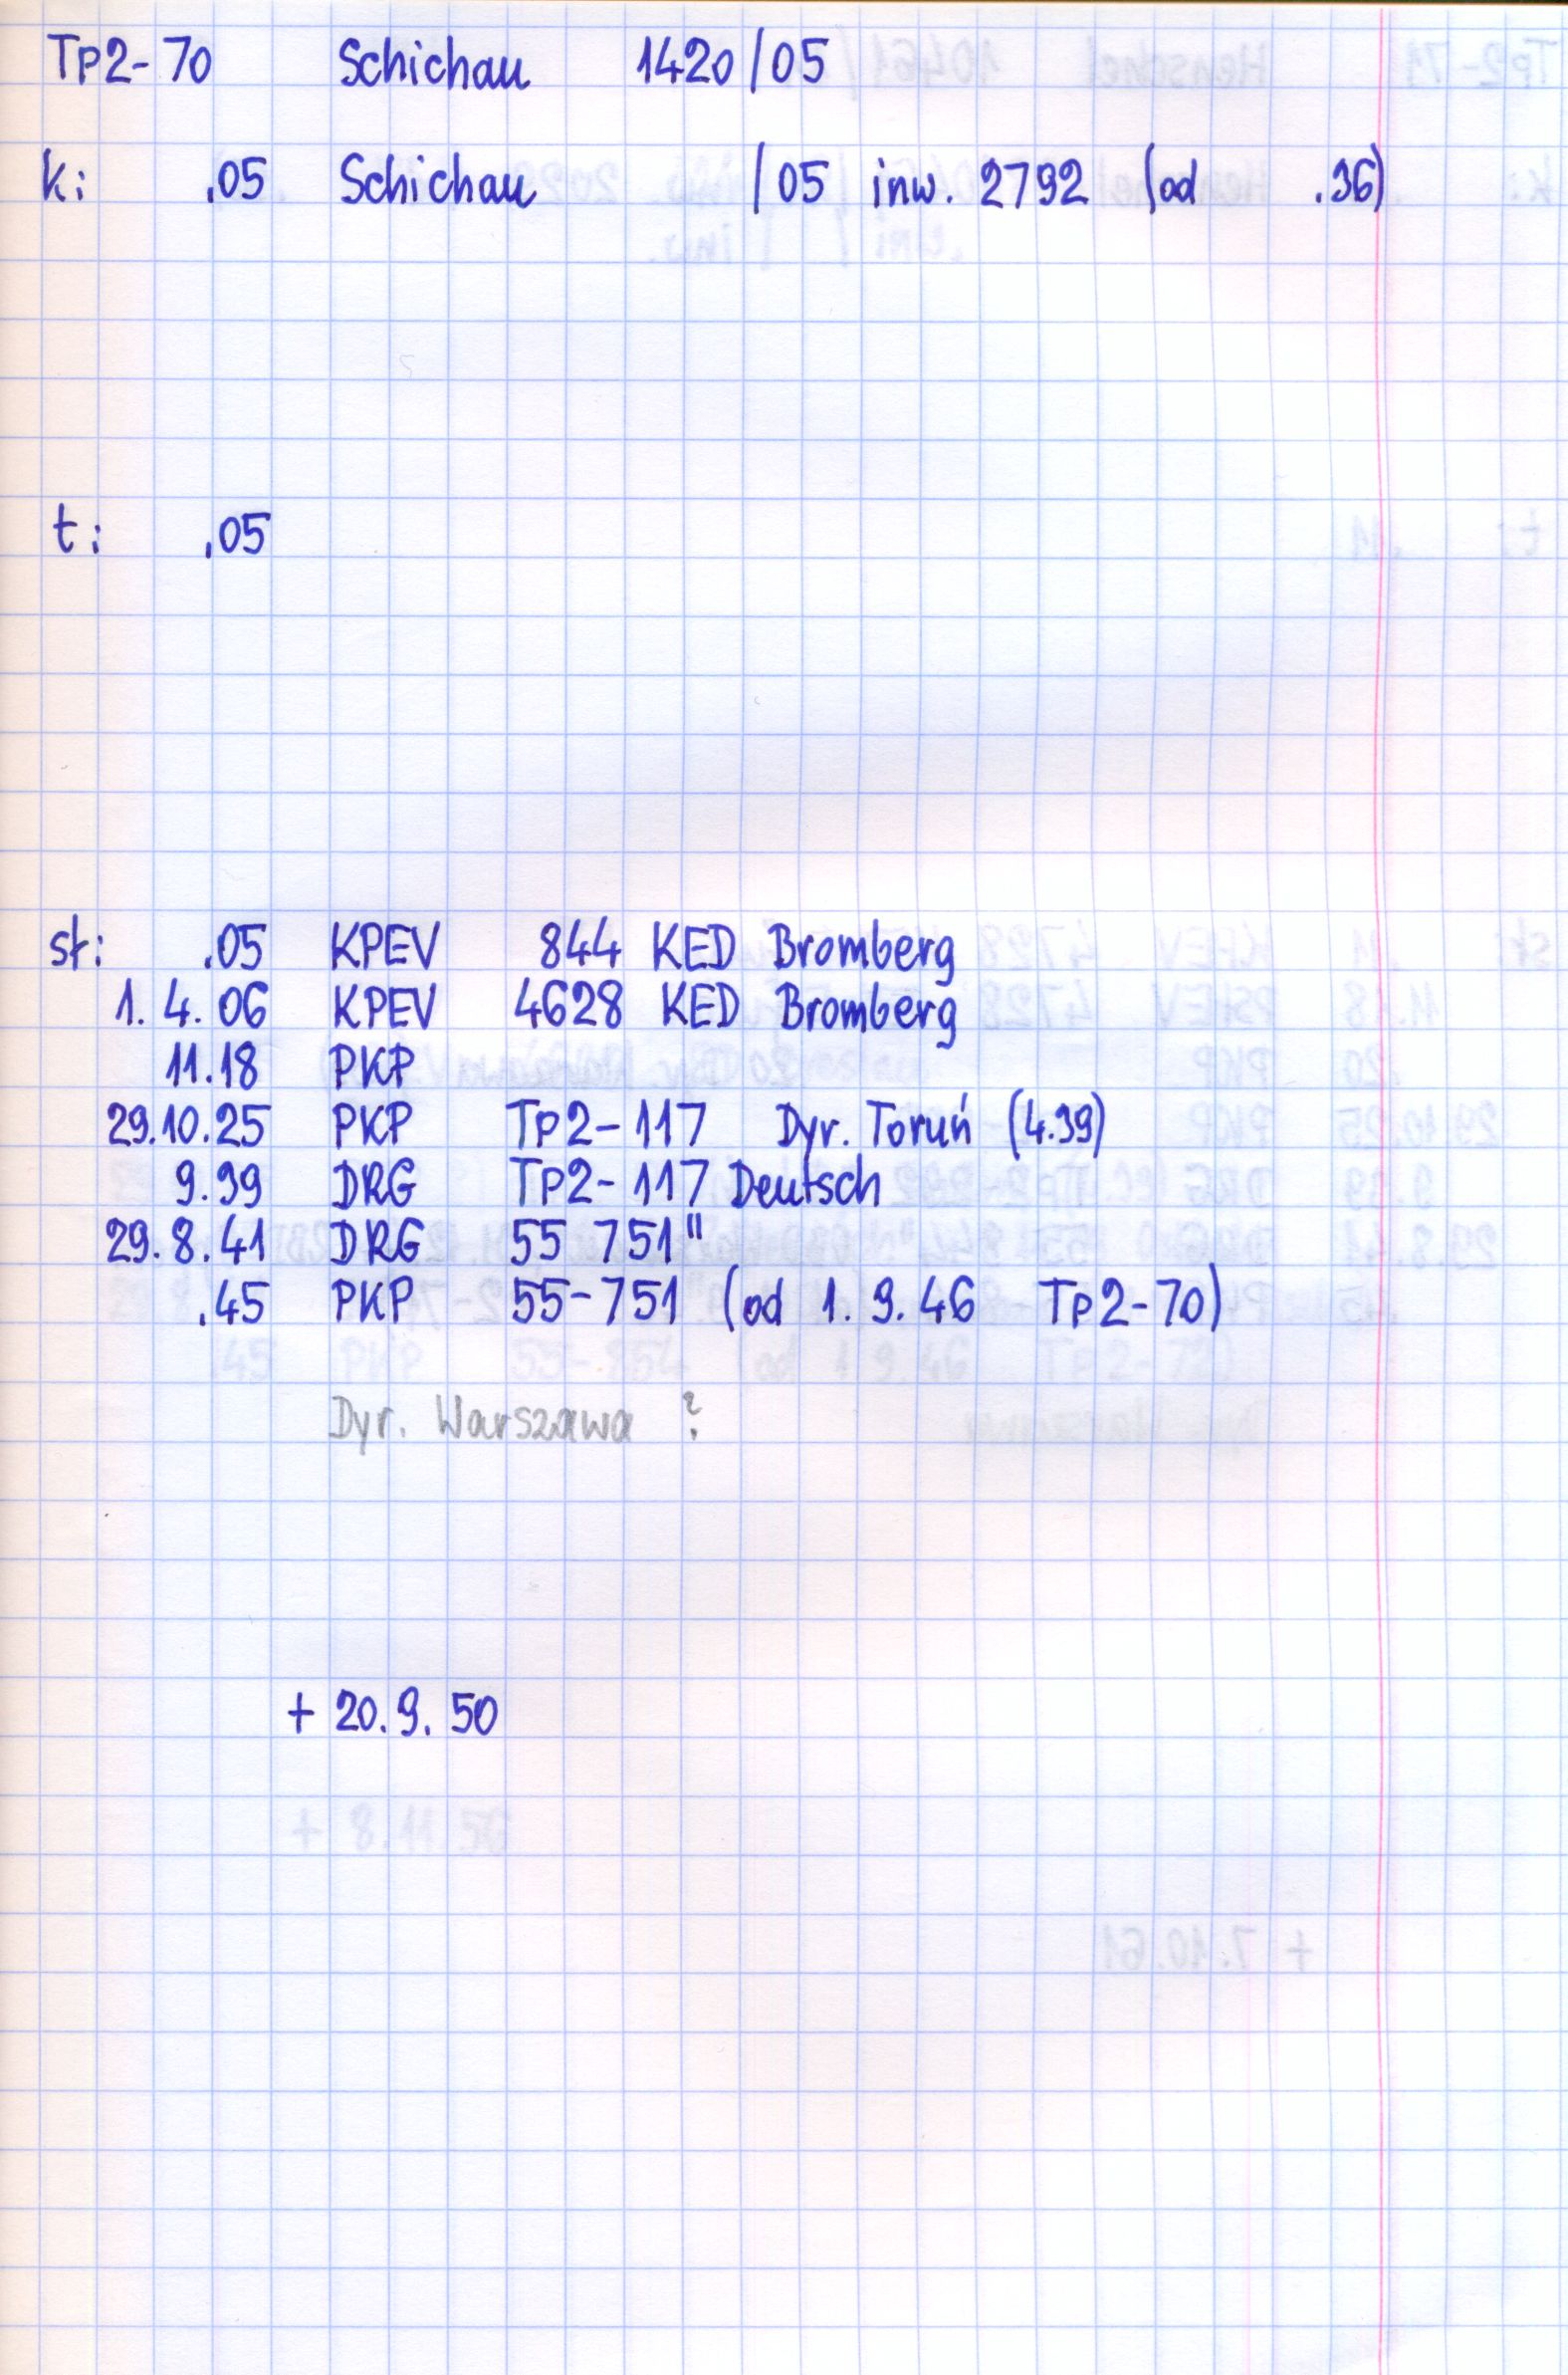 Tp2-70 Schichau 1420/05
k: .05 Schichau /05 inw. 2792 (od .36)
t: .05
st: .05 KPEV 844 KED Bromberg
1. 4. 06 KPEV 4628 KED Bromberg
11.18 PKP
29.10.25 PKP Tp2-117 Dyr. Toruń (4.39)
9.39 DRG Tp2-117 Deutsch
29. 8. 41 DRG 55 751"
.45 PKP 55-751 (od 1. 9. 46 Tp2-70)
Dyr. Warszawa ?
+ 20. 9. 50